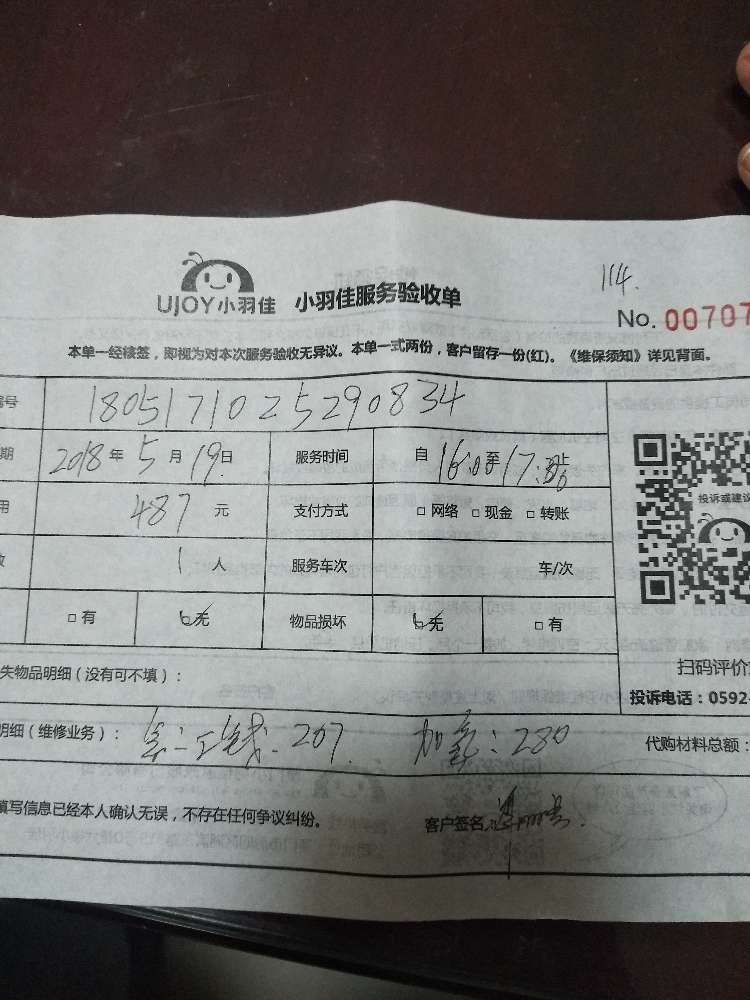 114.
UJOY小羽佳 小羽佳服务验收单
No. 00707
本单一经核签，即视为对本次服务验收无异议。本单一式两份，客户留存一份(红)。《维保须知》详见背面。
编号 1805171025290834
期 2018年5月19日 服务时间 自16:00至17:30止
用 487元 支付方式 □网络 □现金 □转账
投诉或建议
1人 服务车次 车/次
□有 □无 物品损坏 □无 □有
失物品明细（没有可不填）：
扫码评价
投诉电话：0592-
明细（维修业务）： 207 加氧：280 代购材料总额：
填写信息已经本人确认无误，不存在任何争议纠纷。 客户签名